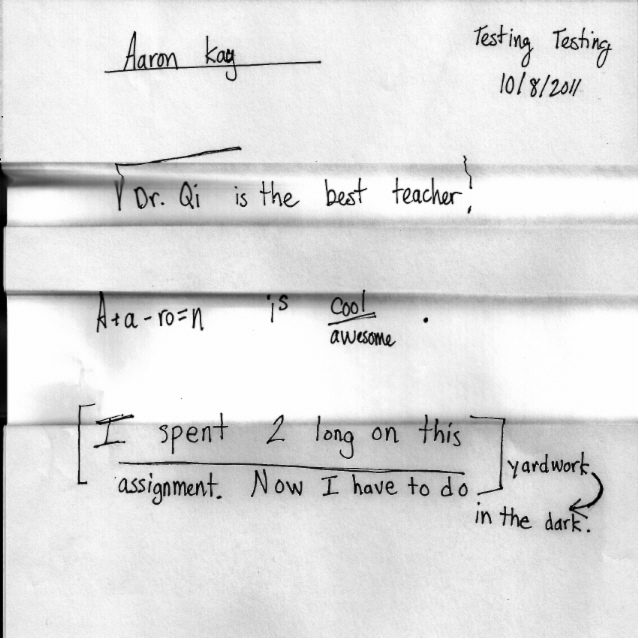 Aaron Kay
Testing Testing
10/8/2011
√Dr. Qi is the best teacher!
A+a-ro=n is cool/awesome.
[I spent 2 long on this
assignment. Now I have to do] yardwork
in the dark.